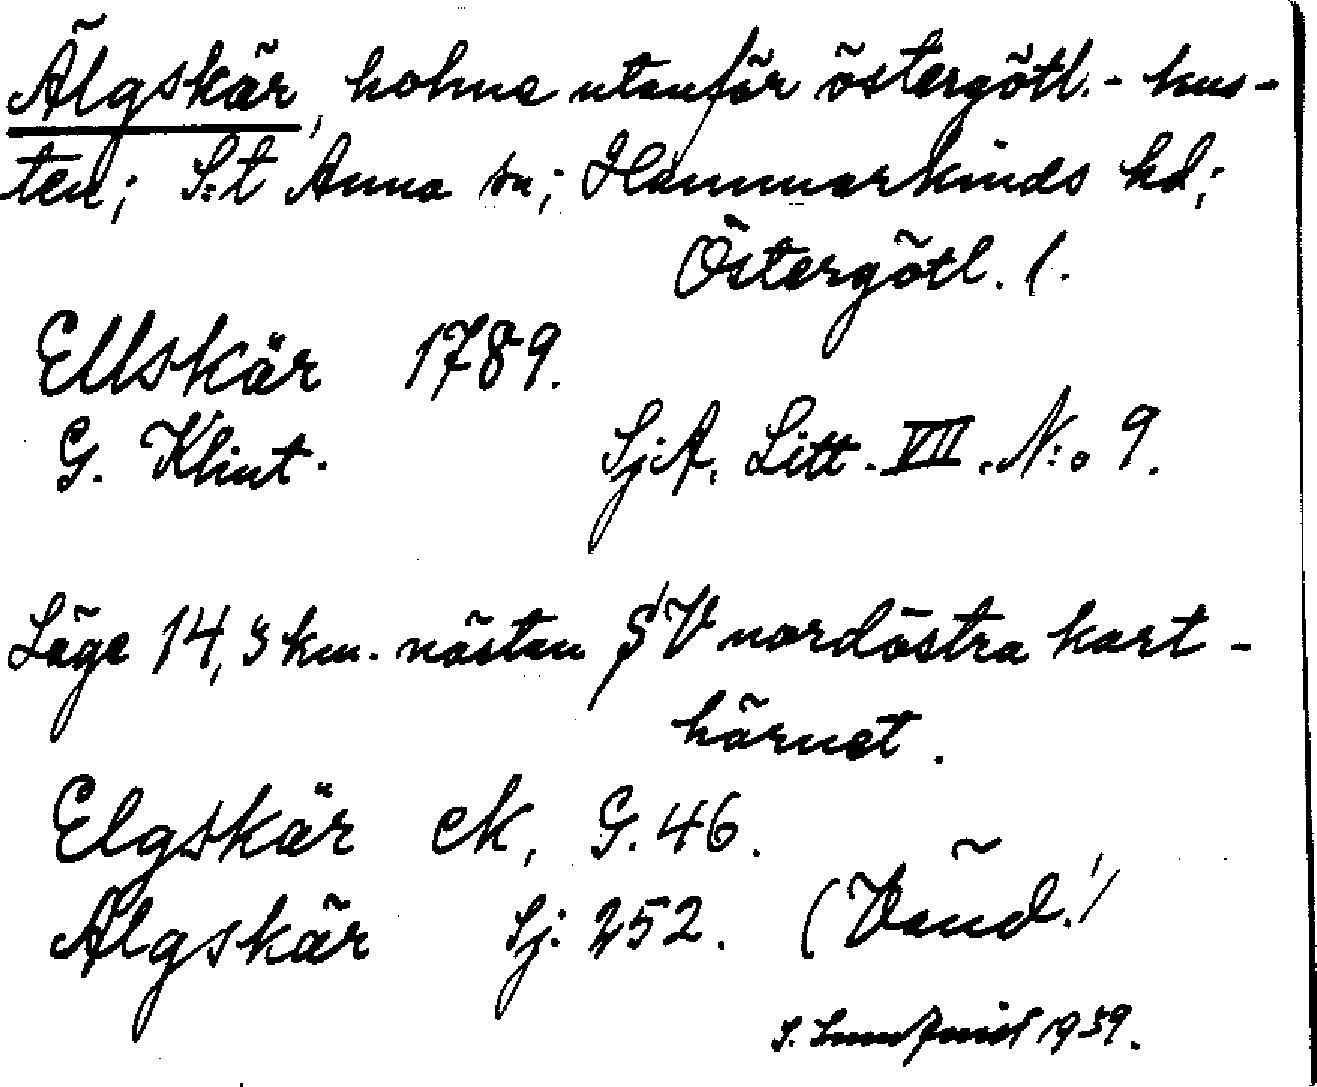 Älgskär, holme utanför östergötl.- kus-
ten; S:t Anna sn; Hammarkinds hd;
Östergötl. l.
Ellskär 1789.
G. Klint. Sj:A, Litt. VII. N:o 9.
Läge 14,3 km. nästan SV nordöstra kart-
hörnet.
Elgskär ek, G. 46.
Älgskär Sj: 252. (Vänd!)
S. 1939.